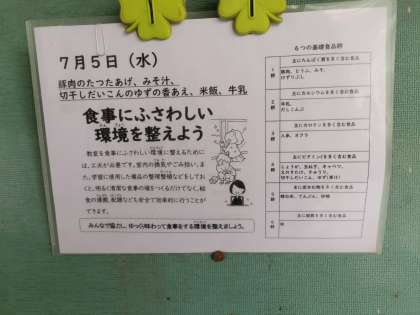 7月5日（水）
豚肉のたつたあげ、みそ汁、
切干しだいこんのゆずの香あえ、米飯、牛乳
食事にふさわしい
環境を整えよう
教室を食事にふさわしい環境に整えるためには、
工夫が必要です。室内の換気やごみ拾い、ま
た、学習に使用した備品の整理整頓などをしてお
くと、明るく清潔な食事の場をつくるだけでなく、給
食の準備、配膳なども安全で効率的に行うことが
できます。
みんなで協力し、ゆっくり味わって食事をする環境を整えましょう。
6つの基礎食品群
1群
主にたんぱく質を多く含む食品
豚肉、とうふ、みそ、
けずりぶし
2群
主にカルシウムを多く含む食品
牛乳、
だしこんぶ
3群
主にカロテンを多く含む食品
人参、オクラ
4群
主にビタミンCを多く含む食品
しょうが、玉ねぎ、キャベツ、
切干しだいこん、ゆず(果汁)
5群
主に炭水化物を多く含む食品
精白米、でんぷん、砂糖
6群
主に脂肪を多く含む食品
油